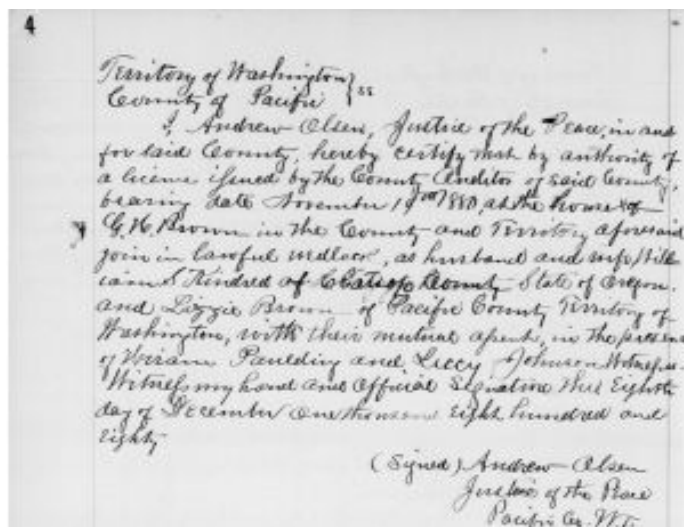 4
Territory of Washington } ss
County of Pacific
I, Andrew Olsen, Justice of the Peace, in and
for said County, hereby certify that by authority of
a license issued by the County Auditor of said County,
bearing date November 1880, at the house of
G.H. Brown in the County and Territory aforesaid
join in lawful wedlock, as husband and wife Will
iam S Kindred of Clatsop County State of Oregon.
and Lizzie Brown of Pacific County Territory of
Washington, with their mutual assent, in the presence
of Hiram Paulding and Johnson Witnesses
Witness my hand and Official Signature this Eighth
day of December one thousand Eight hundred and
Eighty
(Signed) Andrew Olsen
Justice of the Peace
Pacific Co. W.T.